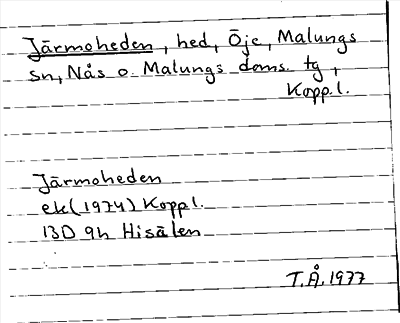 Järmoheden, hed, Öje, Malungs
sn, Nås o. Malungs doms. tg,
Kopp.l.
Järmoheden
ek(1974) Koppl.
13D 9h Hisälen
T.Å. 1977